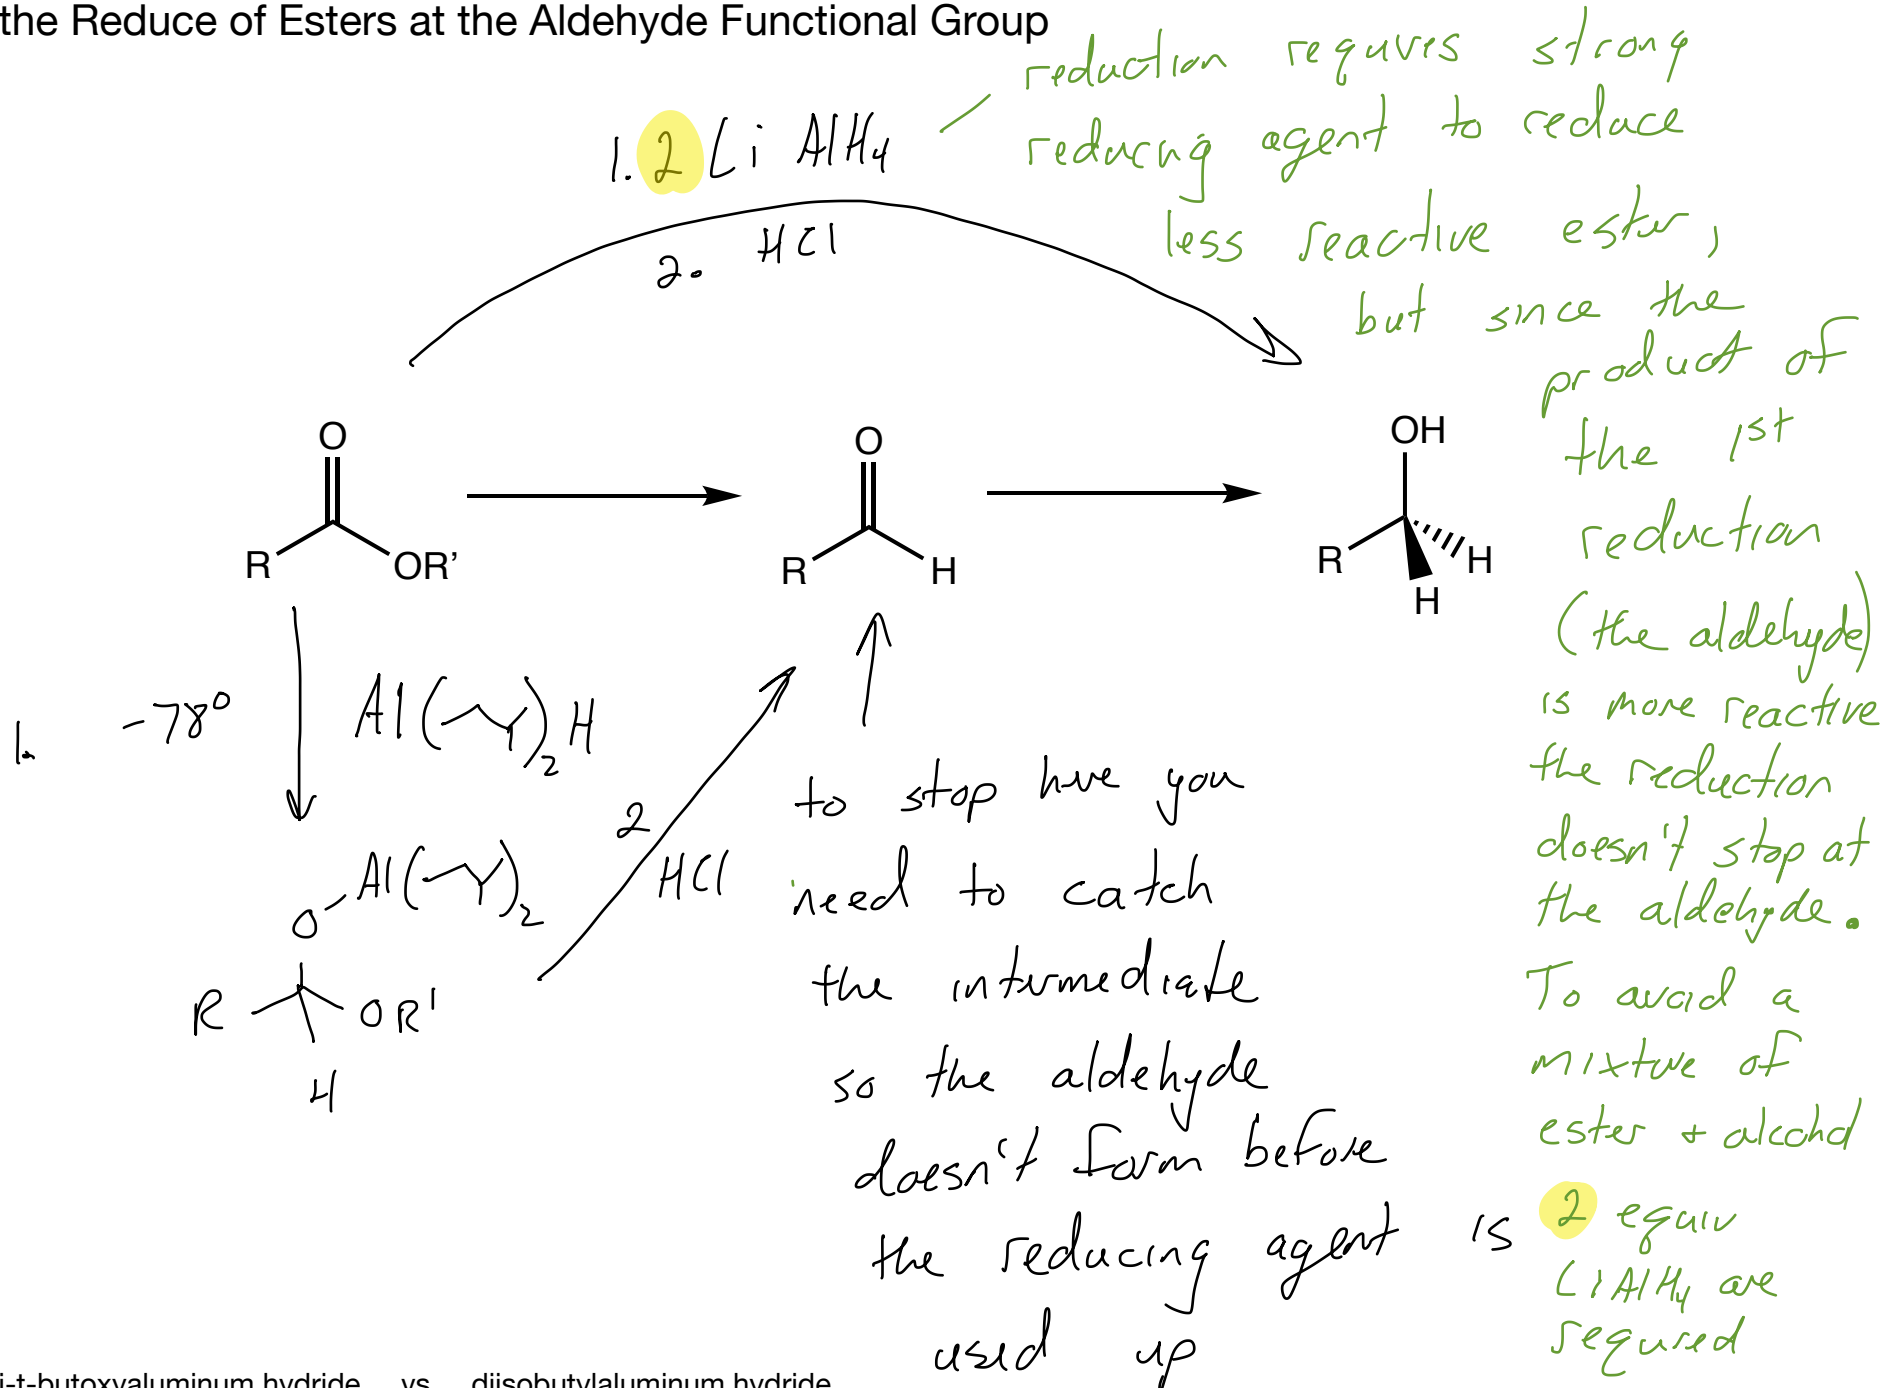 the Reduce of Esters at the Aldehyde Functional Group
1. 2 Li AlH4
2. HCl
reduction requires strong
reducing agent to reduce
less reactive ester,
but since the
product of
the 1st
reduction
(the aldehyde)
is more reactive
the reduction
doesn't stop at
the aldehyde.
To avoid a
mixture of
ester + alcohol
2 equiv
LiAlH4 are
required
O
R
OR'
O
R
H
OH
R
H
H
1. -78°
Al( )2H
O-Al( )2
R
OR'
H
2
HCl
to stop here you
need to catch
the intermediate
so the aldehyde
doesn't form before
the reducing agent is
used up
i-t-butoxyaluminum hydride vs diisobutylaluminum hydride